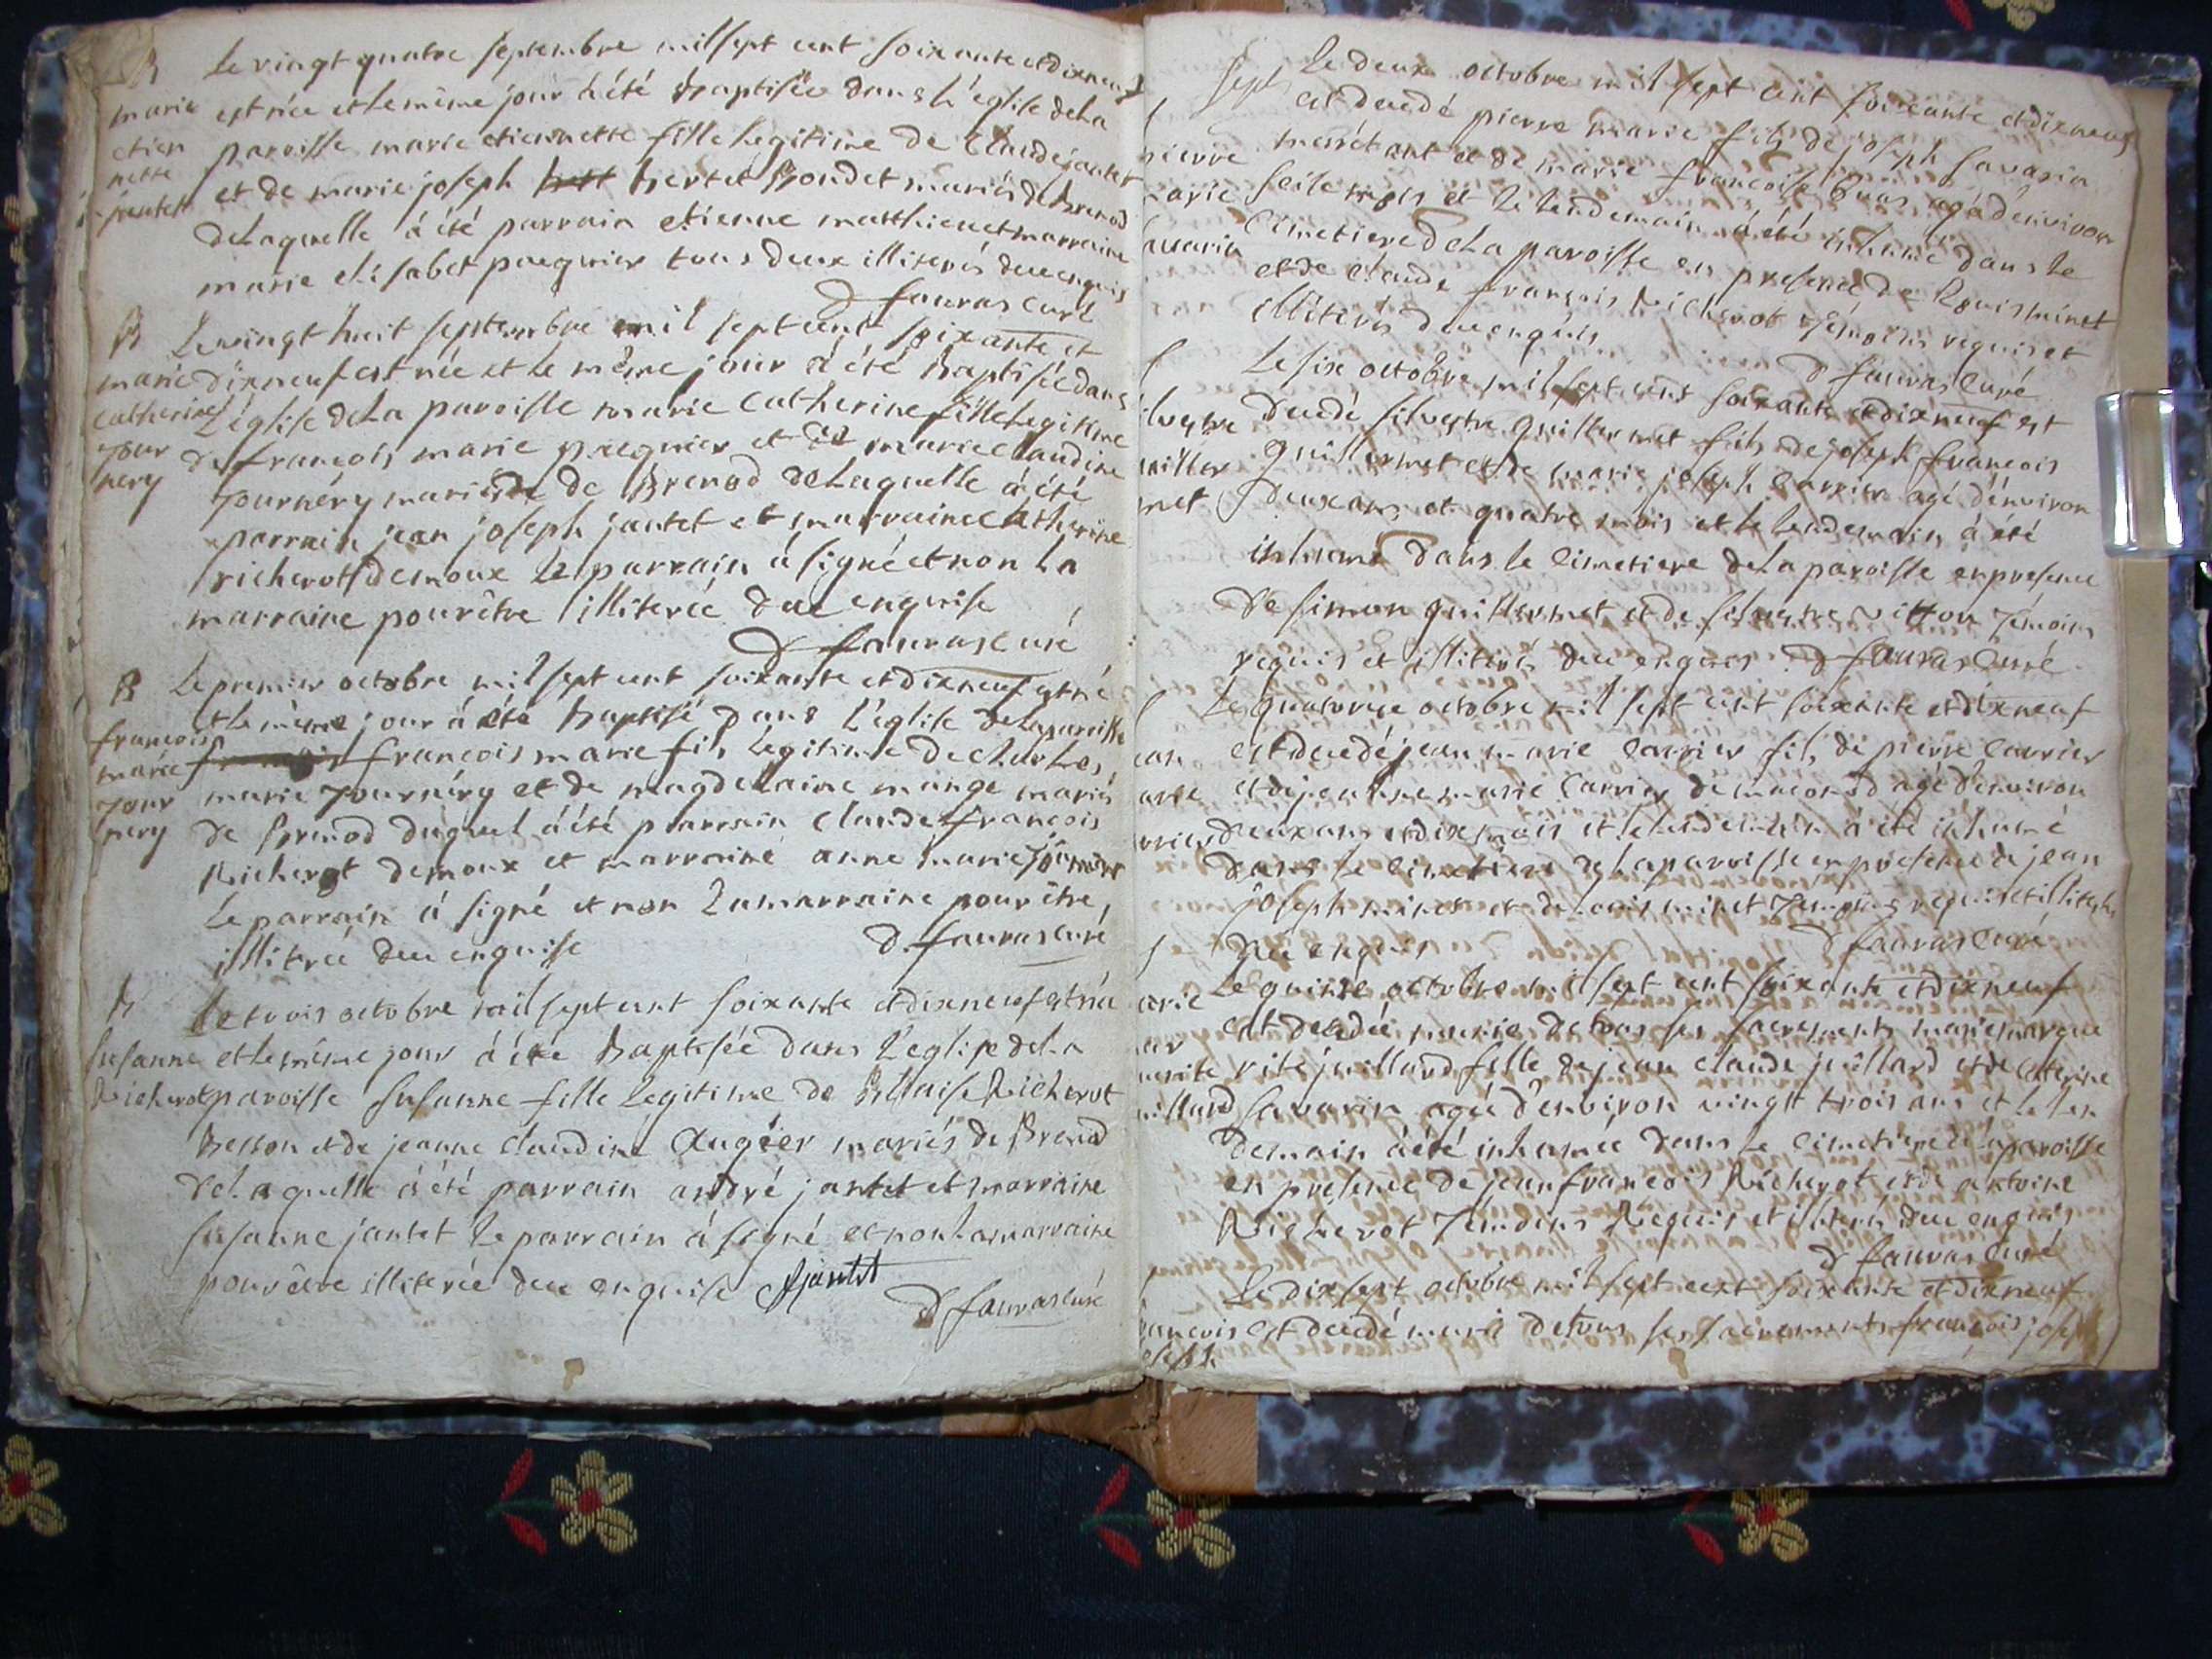 B
marie
etien
nette
jantet
Le vingt quatre septembre mil sept cent soixante et dix neuf
est née et le même jour à été baptisée dans L'église de La
paroisse marie etiennette fille Legitime de Claude jantet
et de marie joseph bertet Bondet mariés de Brenod
de Laquelle à été parrain etienne matthieu et marraine
marie elisabet tous deux illiterés duen enquis
D favras curé
B
marie
catherine
Tour
nery
Le vingt huit septembre mil sept cent soixante et
dix neuf est née et le même jour à été baptisée dans
L'église de La paroisse marie catherine fille Legitime
de francois marie et de marie claudine
Tournéry mariés de Brenod de Laquelle à été
parrain jean joseph jantet et marraine catherine
richerot demoux le parrain à signé et non La
marraine pour être illiterée due enquise
D favras curé
B
francois
marie
Tour
nery
Le premier octobre mil sept cent soixante et dix neuf est né
et le même jour à été baptisé dans L'église de La paroisse
francois marie fils legitime de charles
marie Tournéry et de magdelaine mange mariés
de Brenod duquel à été parrain claude francois
Richerot demoux et marraine anne marie
Le parrain à signé et non La marraine pour être
illiterée due enquise D. favras curé
B
susanne
Richerot
Le trois octobre mil sept cent soixante et dix neuf est née
et le même jour à été baptisée dans L'église de La
paroisse susanne fille legitime de Blaise Richerot
besson et de jeanne claudine Augéer mariés de Brenod
de Laquelle à été parrain andré jantet et marraine
susanne jantet le parrain à signé et non la marraine
pour être illiterée due enquise Ajantet
D favras curé
sept
ierre
marie
savarin
Le deux octobre mil sept cent soixante et dix neuf
est decedé pierre marie fils de joseph savarin
et de marie francoise agé d'environ
seise mois et le lendemain à été inhumé dans le
cimetiere de La paroisse en presence de Louis minet
et de claude françois Richerot Témoins requis et
illiterés duen enquis
D favras curé
ilvestre
uiller
met
Le six octobre mil sept cent soixante et dix neuf est
decedé silvestre guillermet fils de joseph francois
guillermet et de marie joseph carrier agé d'environ
deux ans et quatre mois et le lendemain à été
inhumé dans le cimetiere de La paroisse en presence
de simon guillermet et de silvestre vitton Témoins
requis et illiterés duen enquis D favras curé
ean
arie
arrier
Le quatorze octobre mil sept cent soixante et dix neuf
est decedé jean marie carrier fils de pierre carrier
et de jeanne marie carrier de agé d'environ
deux ans et dix mois et le lendemain à été inhumé
dans le cimetiere de La paroisse en presence de jean
joseph minet et de Louis minet Témoins requis et illiterés
duen enquis
D favras curé
arie
mar
uerite
uillard
Le quinze octobre mil sept cent soixante et dix neuf
est decedée munie de tous ses sacrements marie margue
rite juillard fille de jean claude juillard et de caterine
savarin agée d'environ vingt trois ans et le len
demain à été inhumée dans le cimetiere de la paroisse
en presence de jean francois Richerot et de antoine
Richerot Temoins Requis et illiterés duen enquis
D favras curé
rancois
oseph
Le dix sept octobre mil sept cent soixante et dix neuf
est decedé muni de tous ses sacrements françois jose